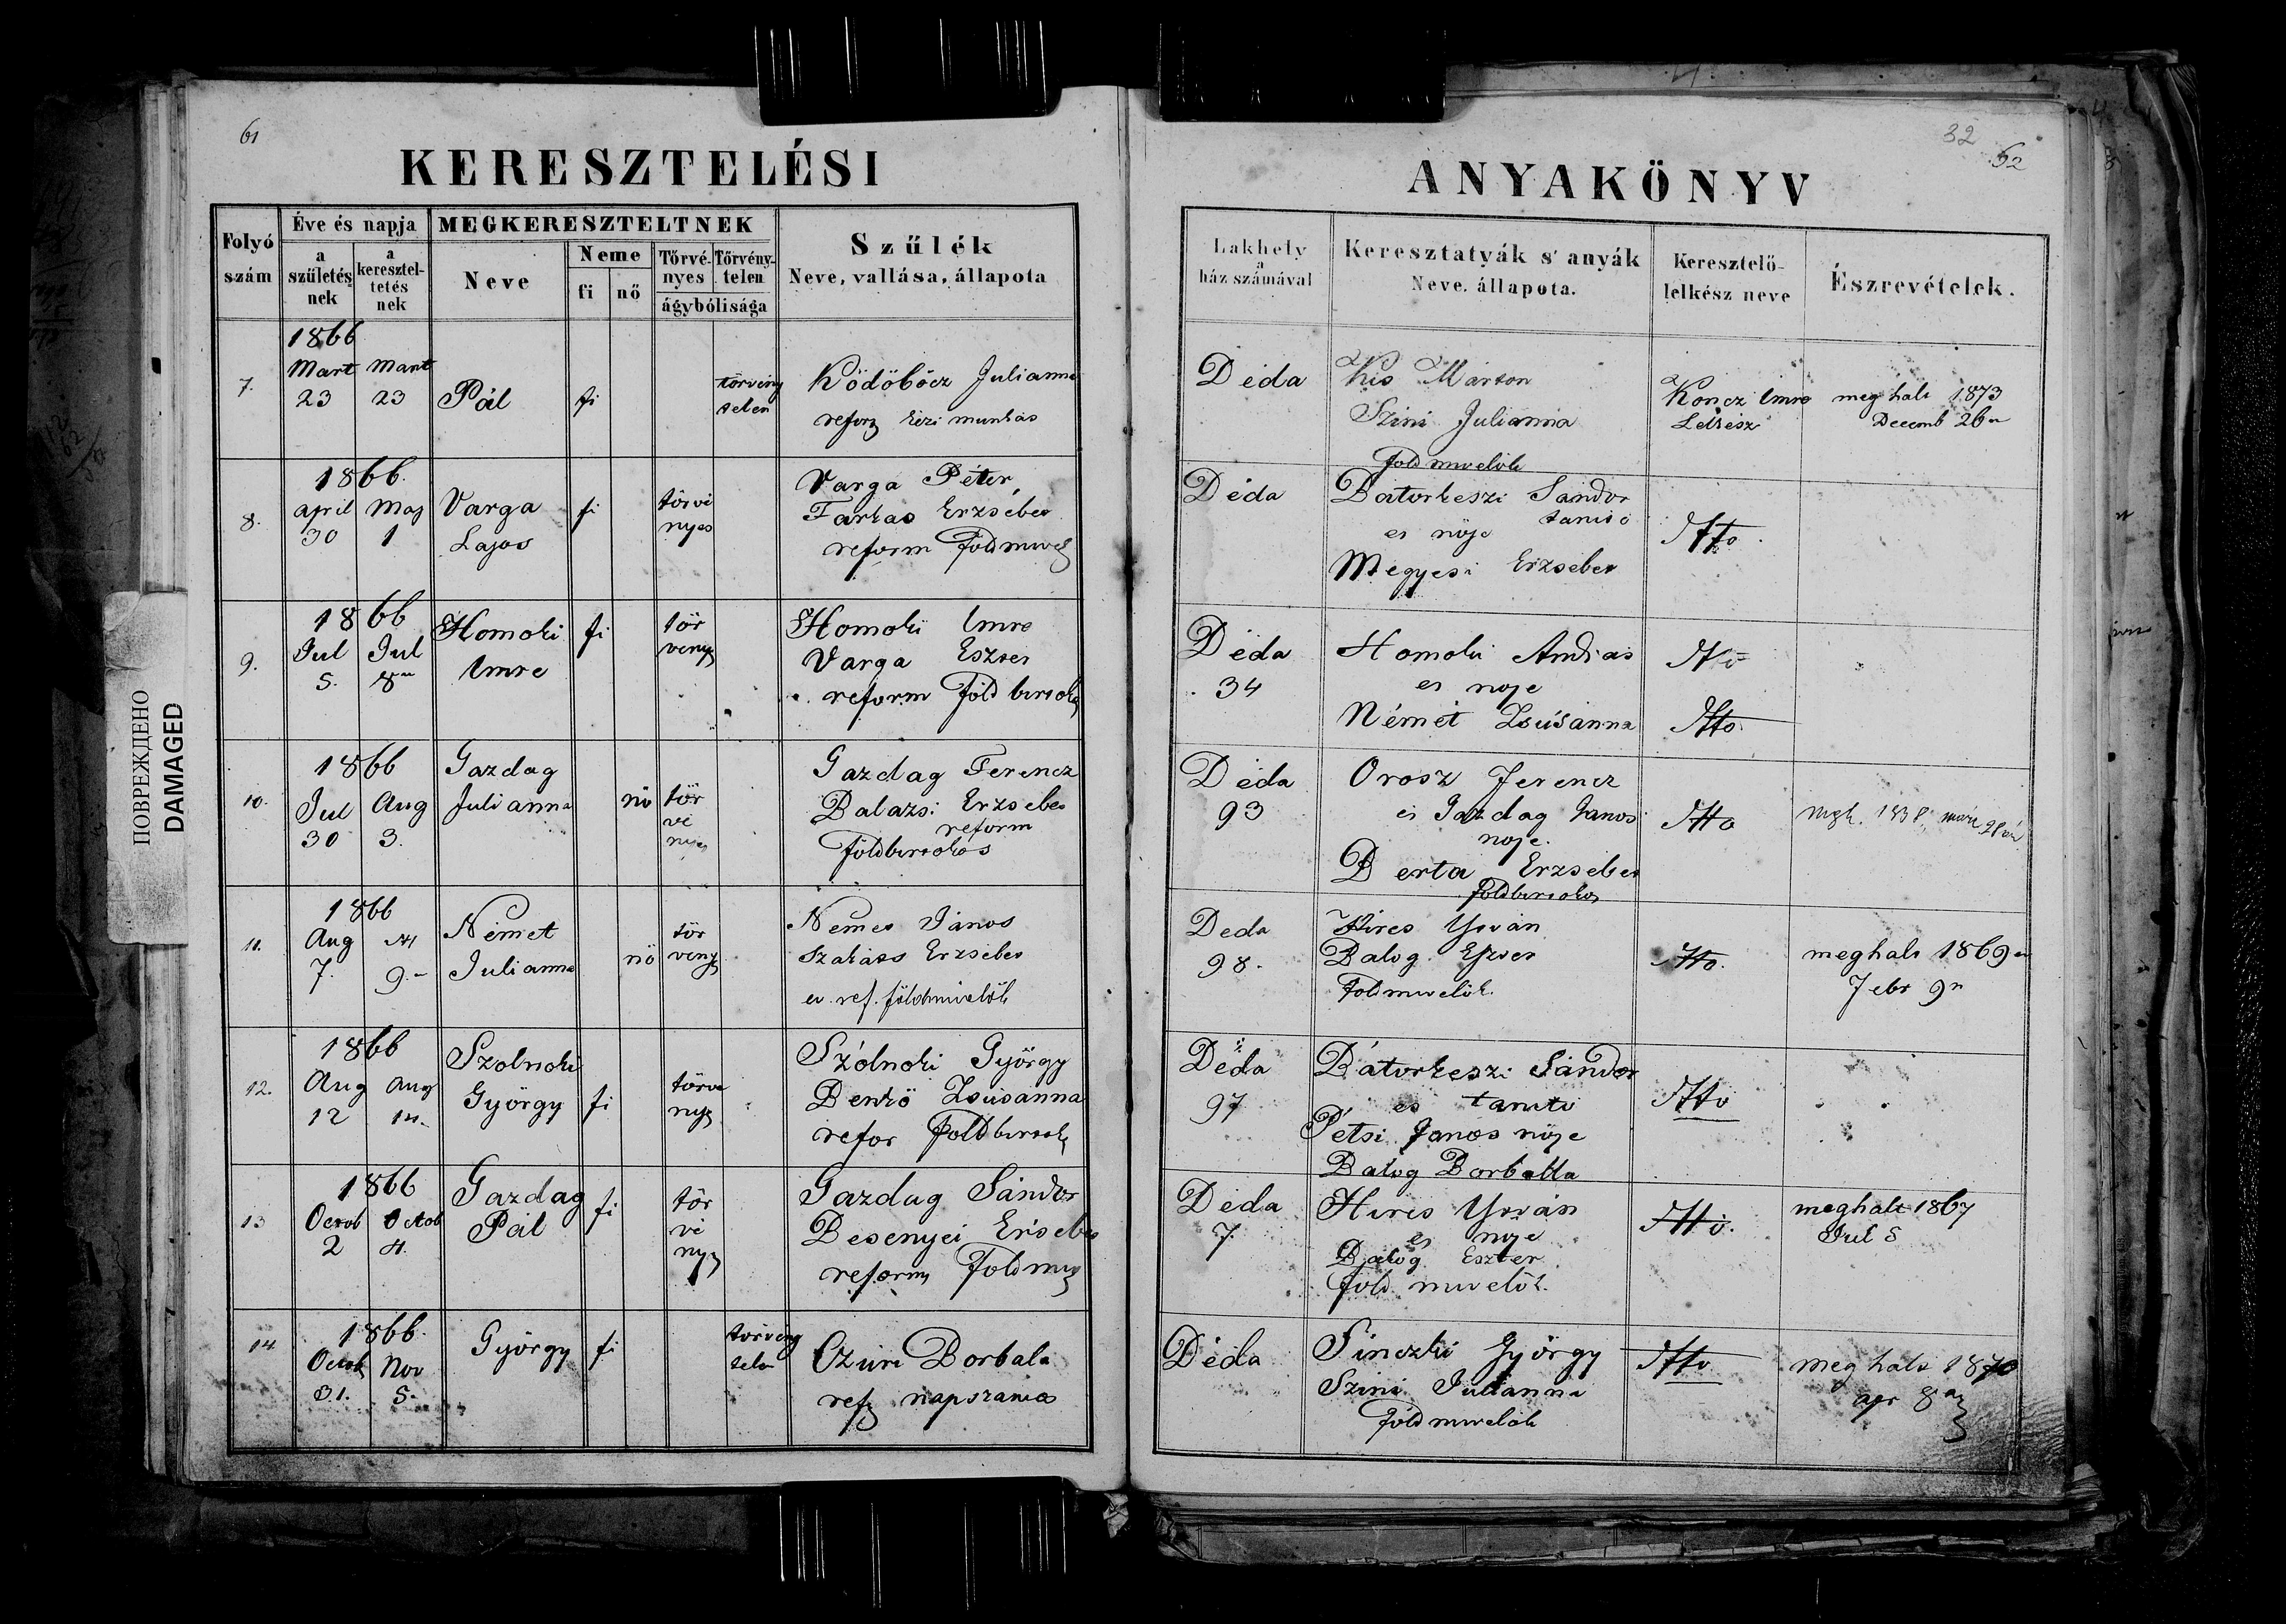 61
KERESZTELÉSI
Folyó szám
Éve és napja
a születés nek
a keresztel- tetés nek
MEGKERESZTELTNEK
Neve
Neme
fi
nő
Törvé- nyes
Törvény- telen
ágybólisága
Szűlék
Neve, vallása, állapota
32
62
ANYAKÖNYV
Lakhely
a
ház számával
Keresztatyák s' anyák
Neve. állapota.
Keresztelő-
lelkész neve
Észrevételek.
7.
1866
Mart 23
Mart 23
Pál
fi
törvény
telen
Ködöböcz Julianna
reform kézi munkás
Déda
Kis Márton
Szini Julianna
Föld mivelök
Koncz Imre
Lelkész
meg halt 1873
Decemb 26
8.
1866.
april 30
Maj 1
Varga
Lajos
fi
törvé
nyes
Varga Péter
Farkas Erzsébet
reform Földmivel
Déda
Bátorkeszi Sandor
tanitó
es nöje
Megyesi Erzsebet
9.
1866
Jul 5.
Jul 8
Homoki
Imre
fi
tör
veny
Homoki Imre
Varga Eszter
reform Föld birtok
Déda
34
Homoki Andras
es noje
Német Zsúsánna
10.
1866
Jul 30
Aug 3.
Gazdag
Julianna
nö
tör
vé
nyes
Gazdag Ferencz
Balazsi Erzsebet
reform
Földbirtokos
Déda
93
Orosz Ferencz
es Gazdag Janos
noje.
Berta Erzsebet
földbirtokos
11.
1866
Aug 7.
9.
Német
Julianna
nö
tör
veny
Nemet János
Szakács Erzsebet
ev. ref. földmivelök
Deda
98.
Hires István
Balog Eszter
Földmivelök.
meghalt 1869
Febr 9
12.
1866
Aug 12
Aug 14.
Szolnoki
György
fi
törve
nyes
Szólnoki György
Benkö Zsusánna
refor Földbirtok
Déda
97
Bátorkeszi Sándor
es tanito
Pétsi Janos nöje
Balog Borballa
13
1866
Octob 2
Octob 4.
Gazdag
Pál
fi
tör
vé
nyes
Gazdag Sándor
Besenyei Ersebet
reform Föld miv
Déda
7.
Hires István
es nöje
Balog Eszter
Föld mivelök.
meghalt 1867
Jul 5
14
1866.
Octob 31.
Nov 5.
György
fi
törvény
telen
Czúni Borbala
ref napszamos
Déda
Sinczki György
Szini Julianna
Föld mivelök
meg halt 1870
apr 8
ПОВРЕЖДЕНО
DAMAGED